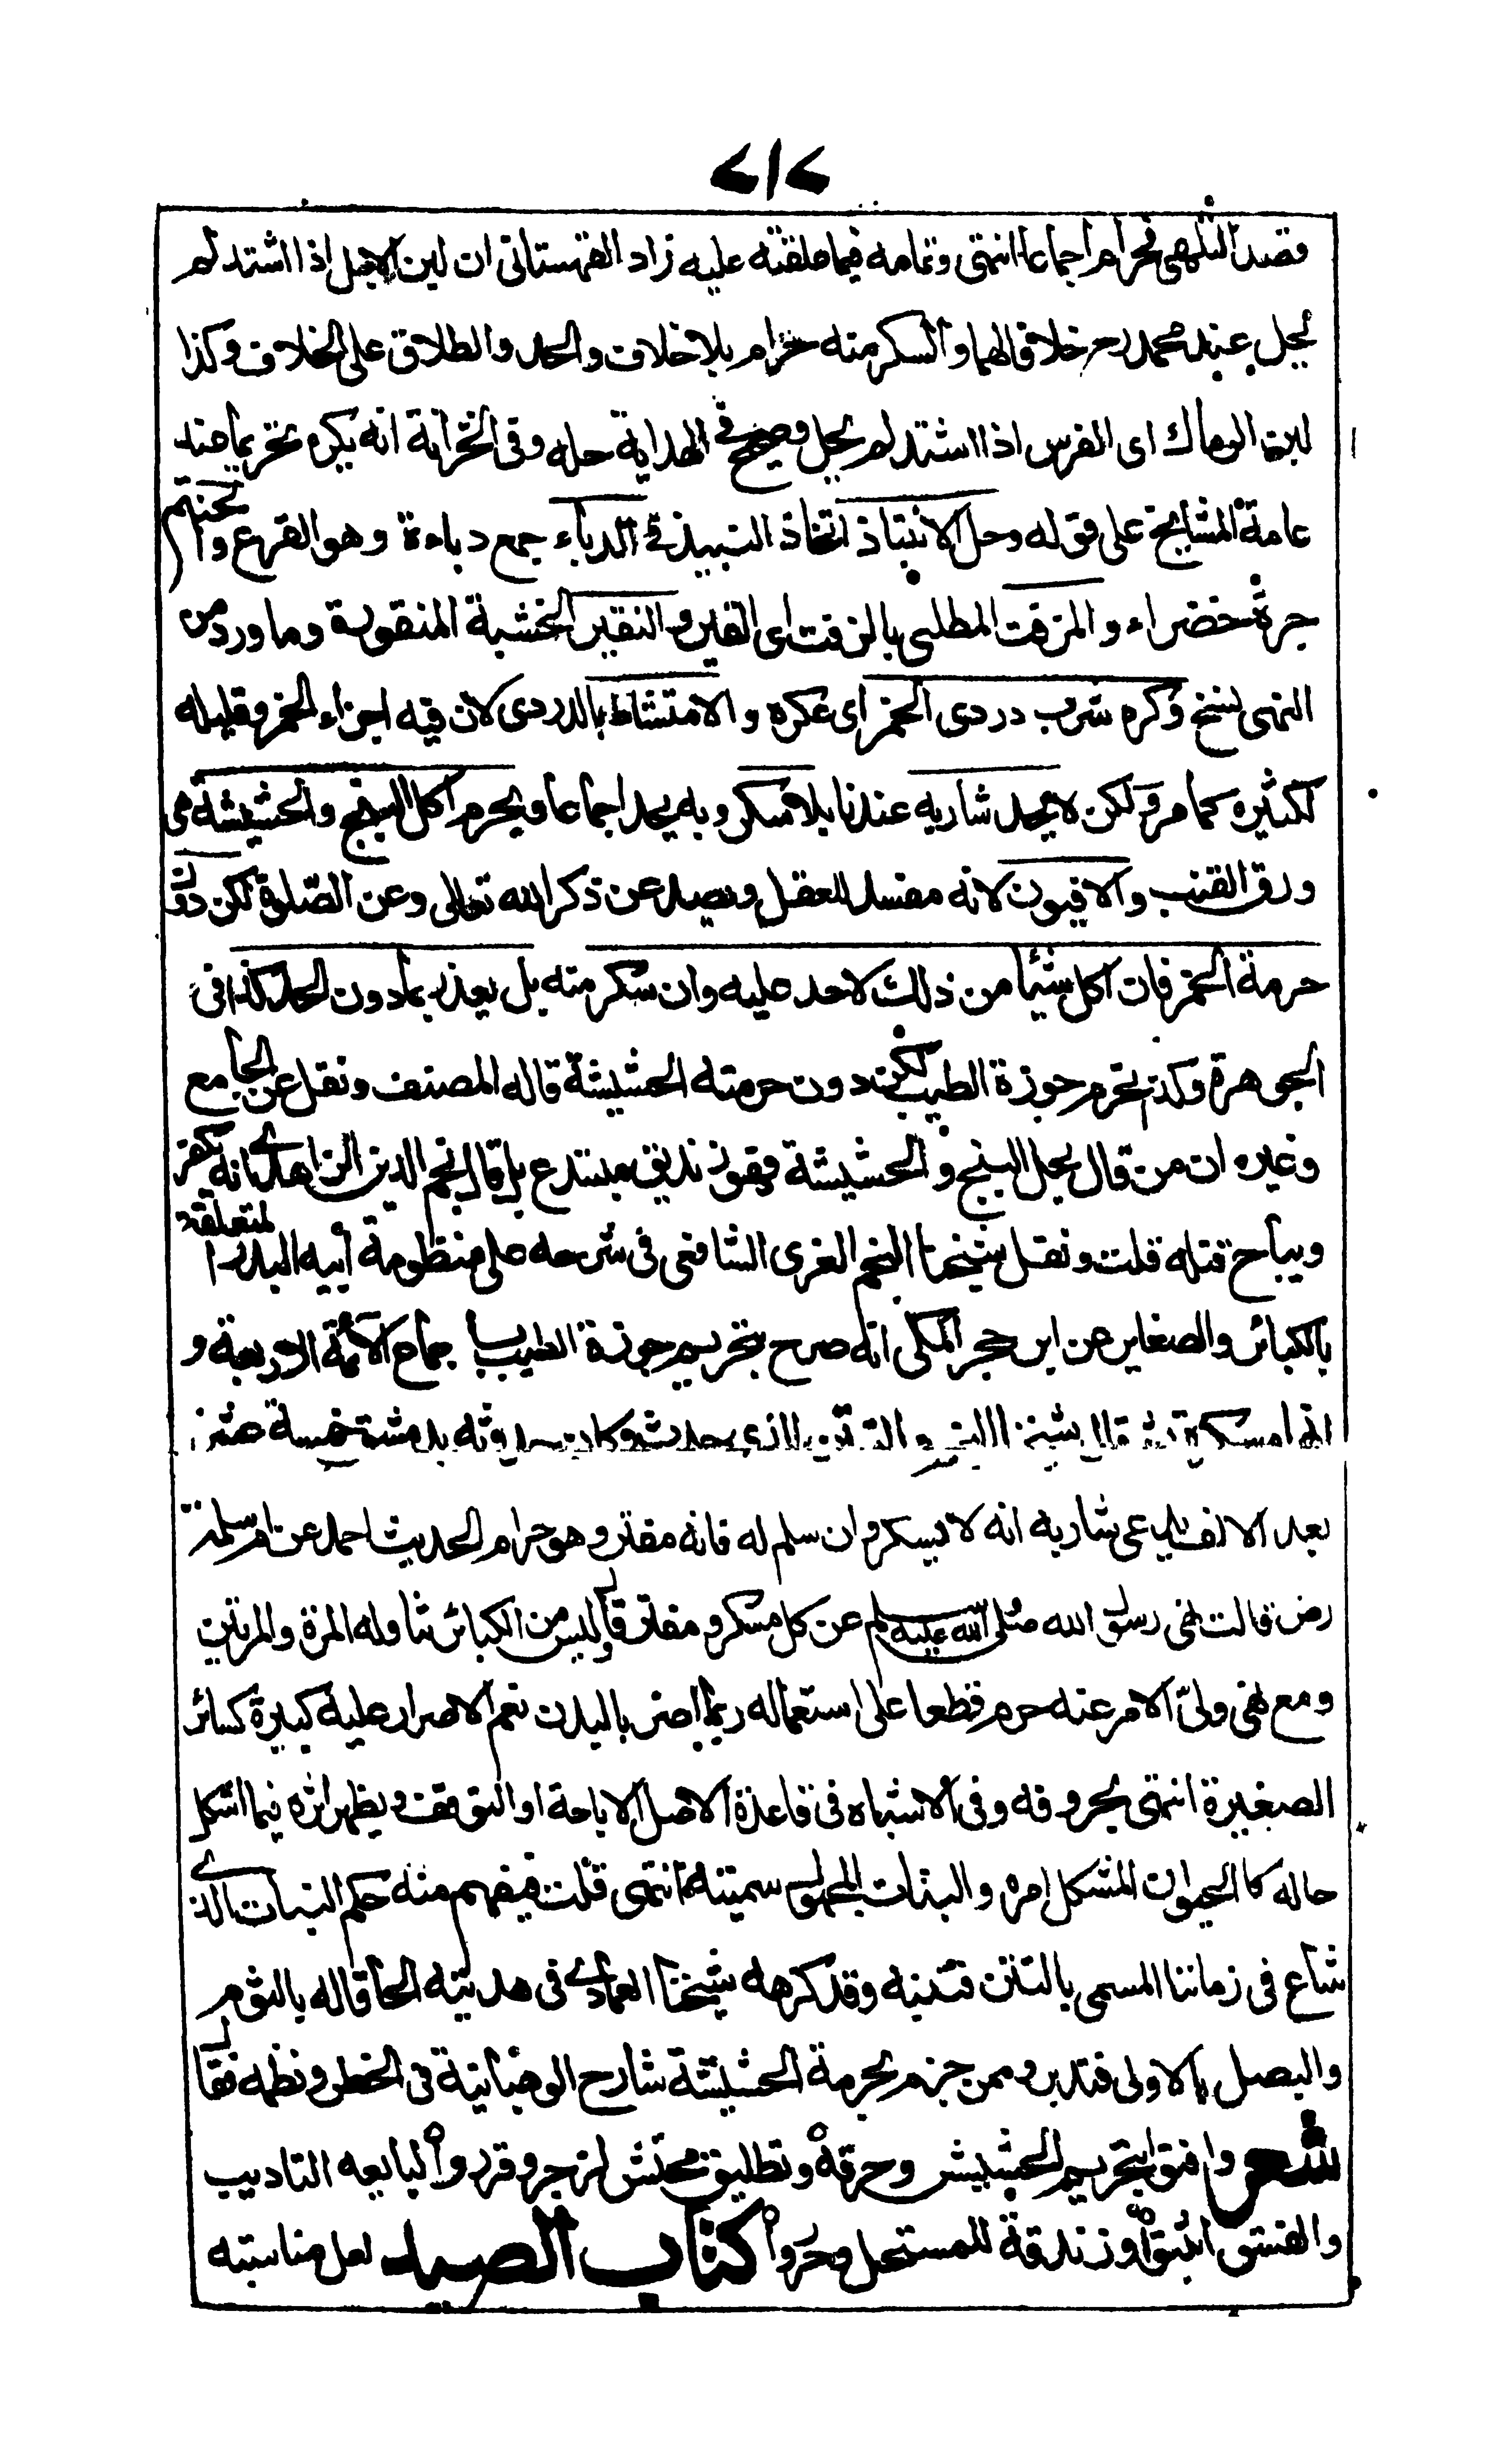 ٧١٧
قصد التلهى فحرام اجماعا انتهى وتمامه فيما علقته عليه زاد القهستانى ان لبن الابل اذا اشتد لم
يحل عند محمد رح خلافا لهما والسكر منه حرام بلا خلاف والحد والطلاق على الخلاف وكذا
لبن الرماك اى الفرس اذا اشتد لم يحل وصحح فى الهداية حله وفى الخزانة انه يكره تحريما عند
عامة المشايخ على قوله وحل الانتباذ اتخاذ النبيذ فى الدباء جمع دباءة وهو القرع والحنتم
جرة خضراء والمزفت المطلى بالزفت اى القير والنقير الخشبة المنقورة وما ورد من
النهى نسخ وكره شرب دردى الخمر اى عكره والامتشاط بالدردى لان فيه اجزاء الخمر وقليله
لكثيره كما مر ولكن لا يحد شاربه عندنا بلا سكر وبه يحد اجماعا ويحرم اكل البنج والحشيشة هى
ورق القنب والافيون لانه مفسد للعقل ويصد عن ذكر الله تعالى وعن الصلوة لكن دون
حرمة الخمر فان اكل شيئا من ذلك لا حد عليه وان سكر منه بل يعذر بما دون الحد كذا فى
الجوهرة وكذا تحرم جوزة الطيب لكن دون حرمته الحشيشة قاله المصنف ونقل عن الجامع
وغيره ان من قال بحل البنج والحشيشة فهو زنديق مبتدع بل قال نجم الدين الزاهدى انه يكفر
ويباح قتله قلت ونقل شيخنا النجم الغزى الشافعى فى شرحه على منظومة أبيه البدر المتعلقة
بالكبائر والصغاير عن ابن حجر المكى انه صرح بتحريم جوزة الطيب باجماع الائمة الاربعة و
انها مسكرة ثم قال شيخنا النجم والتتن الذى حدث وكان حدوثه بدمشق خمسة عشر
بعد الالف يدعى شاربه انه لا يسكر وان سلم له فانه مفتر وهو حرام الحديث احمد عن ام سلمة
رض قالت نهى رسول الله صلى الله عليه وسلم عن كل مسكر ومفتر قال وليس من الكبائر تناوله المرة والمرتين
ومع نهى ولىّ الامر عنه حرم قطعا على استعماله ربما اضر بالبدن نعم الاصرار عليه كبيرة كسائر
الصغيرة انتهى بحروفه وفى الاشباه فى قاعدة الاصل الاباحة او التوقف ويظهر اثره فيما اشكل
حاله كالحيوان المشكل امره والنبات المجهول سميته انتهى قلت فيفهم منه حكم النبات الذى
شاع فى زماننا المسمى بالتتن فتنبه وقد كرهه شيخنا العمادى فى هديته الحاقا له بالثوم
والبصل بالاولى فتدبر وممن جزم بحرمة الحشيشة شارح الوهبانية فى الخطر ونظمه فقال
شعر وافتوا بتحريم الحشيش وحرقه وتطليق محتش لزجر وقرروا لبايعه التاديب
والفسق اثبتوا وزندقة للمستحل وحرروا كتاب الصيد لعل مناسبته